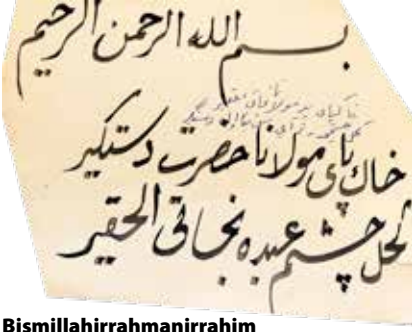 بسم الله الرحمن الرحيم
خاك پای مولانا حضرت دستكير
كحل چشم عبده نجاتی الحقير
Bismillahirrahmanirrahim